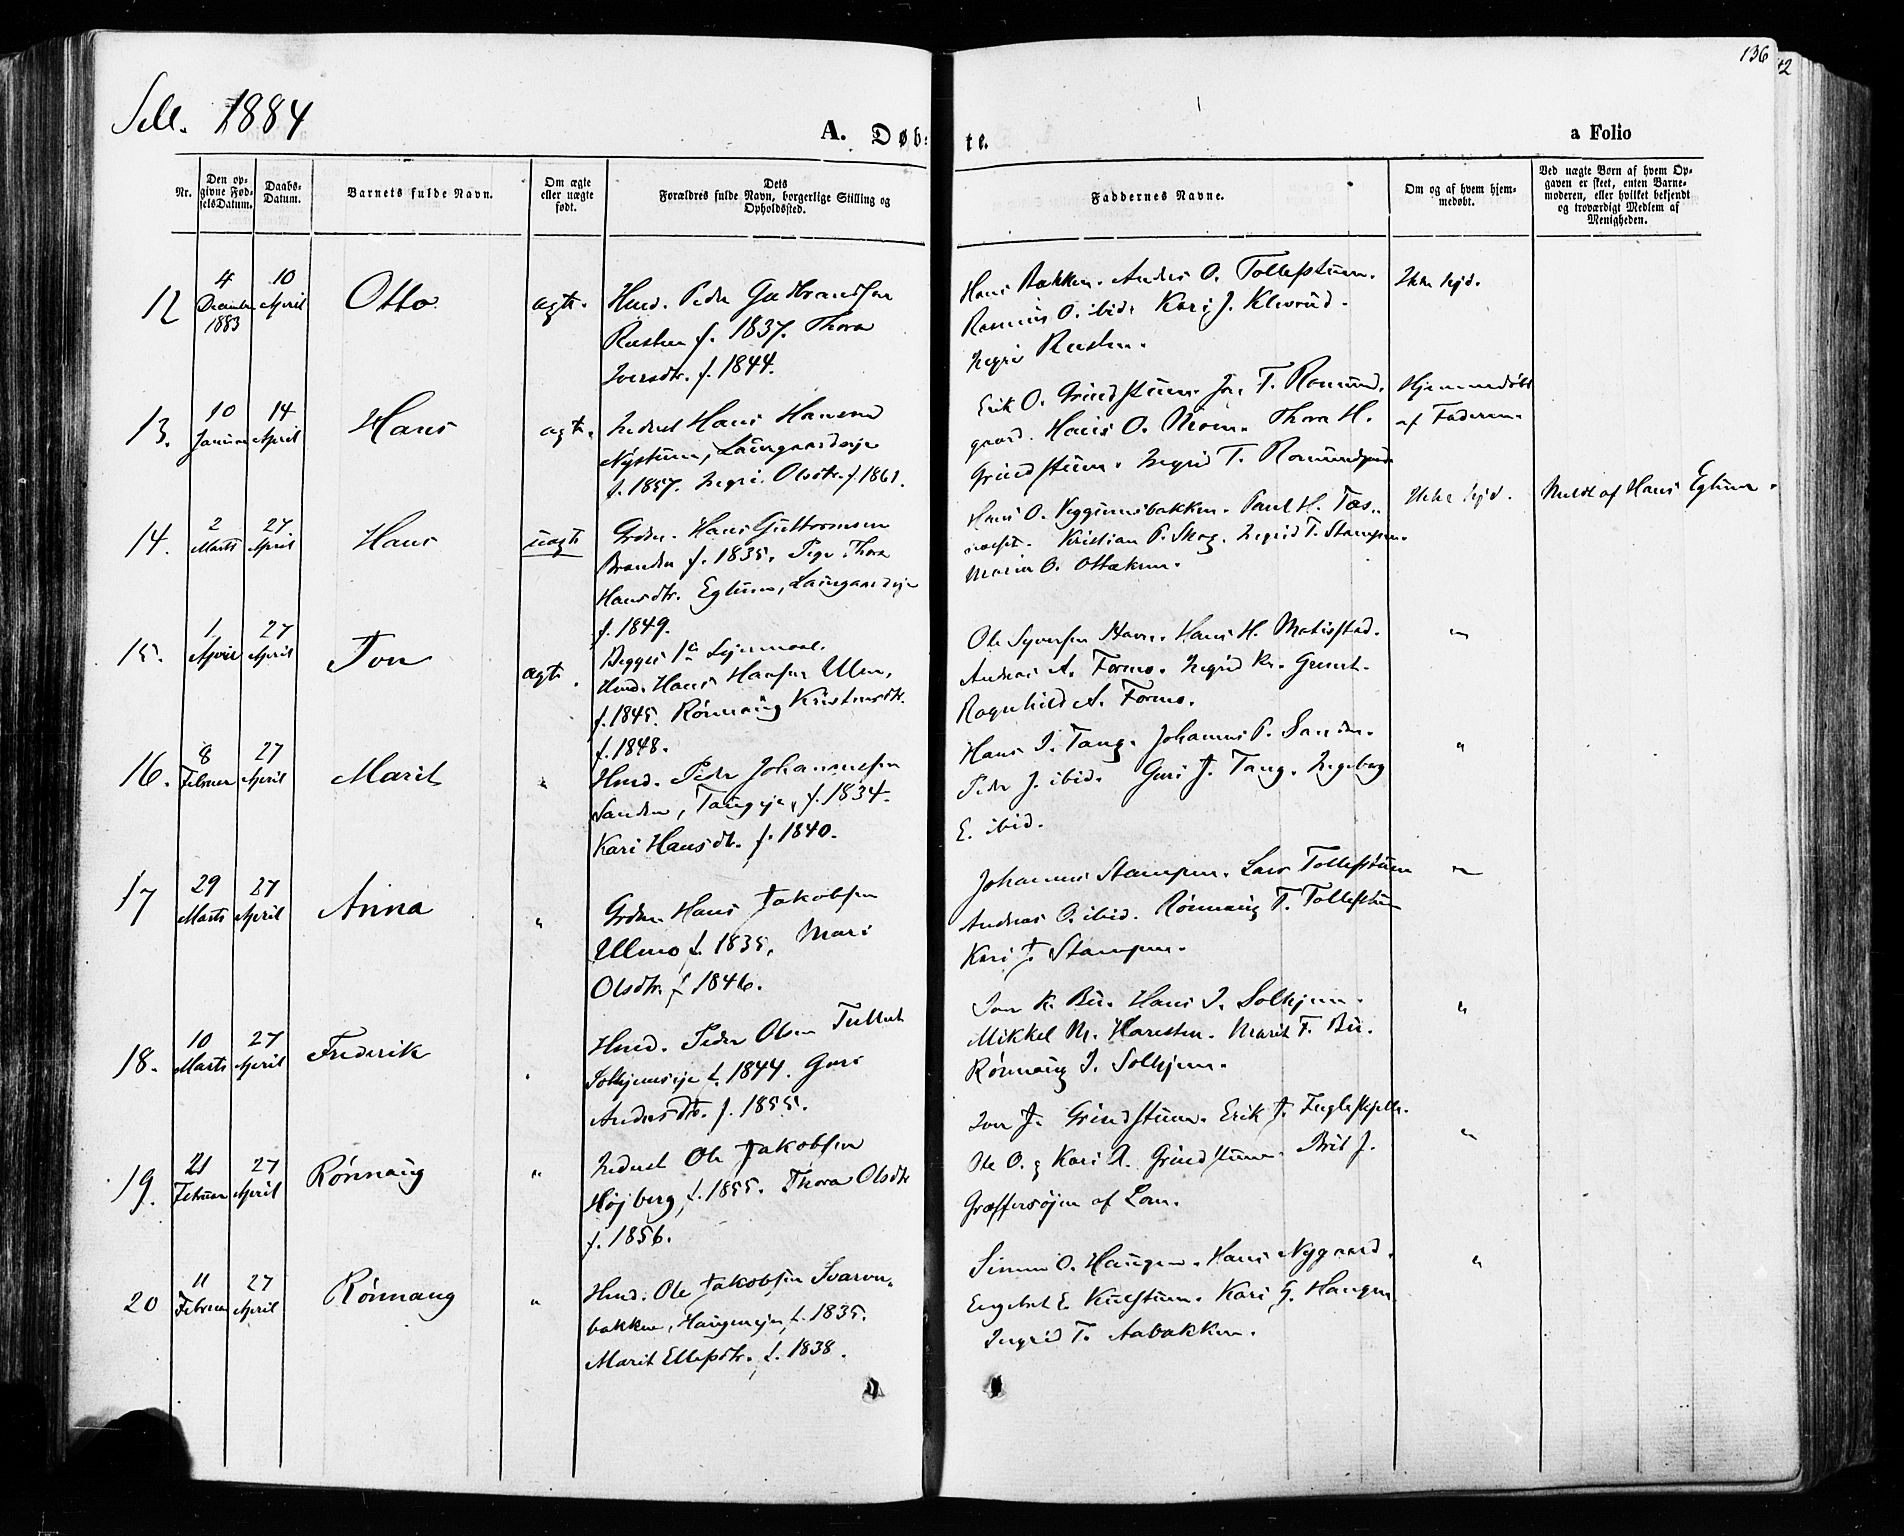 136
42
Sell. 1884
A. Døb-
te.
a Folio
Nr.
Den op-
givne Fød-
selsDatum.
Daabs-
Datum.
Barnets fulde Navn.
Om ægte
eller uægte
født.
Dets
Forældres fulde Navn, borgerlige Stilling og
Opholdssted.
Faddernes Navne.
Om og af hvem hjem-
medøbt.
Ved uægte Børn af hvem Op-
gaven er skeet, enten Barne-
moderen, eller hvilket bekjendt
og troværdigt Medlem af
Menigheden.
12
4
December
1883
10
April
Otto
ægte.
Hmd. Peder Gudbrandsen
Rusten f. 1837. Thora
Iversdtr. f. 1844.
Hans Bakken. Anders O. Tollefstuen.
Rasmus O. ibid. Kari J. Kleverud.
Ingri Rusten.
Ikke hjd.
13.
10
Januar
14
April
Hans
ægte.
Inderst Hans Hansen
Nystuen, Laurgaardseje
f. 1857. Ingri Olsdtr. f. 1861.
Erik O. Grindstuen. Jon T. Romund-
gaard. Hans O. Moen. Thora H.
Grindstuen. Ingrid T. Romundgaard
Hjemmedøbt
af Faderen.
14.
2
Marts
27
April
Hans
uægte
Grdm. Hans Guttormsen
Branden f. 1835, Pige Thora
Hansdtr. Eglien, Laurgaardseje
f. 1849.
Begges 1ste Lejermaal.
Hans O. Veggumsbakken. Paul H. Tæs-
Kristian P. Skog. Ingrid T. Stampen.
Maria O. Ottekren.
Ikke hjd.
Meldt af Hans Eglien.
15.
1
April
27
April
Jon
ægte.
Hmd. Hans Hansen Ulen,
f. 1845. Rønnaug Kristensdtr.
f. 1848.
Ole Syversen Horne. Hans H. Matisstad.
Andreas A. Formo. Ingrid Kr.
Ragnhild A. Formo.
"
16.
8
Februar
27
April
Marit
"
Hmd. Peder Johannessen
Sanden, Taugeje, f. 1834.
Kari Hansdtr. f. 1840.
Hans I. Taug. Johannes P. Sanden.
Peder J. ibid. Guri J. Taug. Ingeborg
E. ibid.
"
17
29
Marts
27
April
Anna
"
Grdm. Hans Jakobsen
Ulmo, f. 1835, Mari
Olsdtr. f. 1846.
Johannes Stampen. Lars Tollefstuen
Andreas O. ibid. Rønnaug T. Tollefstuen
Kari J. Stampen.
"
18.
10
Marts
27
April
Frederik
"
Hmd. Peder Olsen
Solhjemseje f. 1844. Guri
Andersdtr. f. 1855.
Jon K. Bu. Hans I. Solhjem.
Mikkel M. Haresten. Marit F. Bu.
Rønnaug I. Solhjem.
"
19.
21
Februar
27
April
Rønnaug
"
Inderst Ole Jakobsen
Højberg, f. 1855. Thora Olsdtr
f. 1856.
Iver J. Grindstuen. Erik J. Fugleskjelle.
Ole O. og Kari A. Grindstuen. Brit J.
Græffersøjen af Lom.
"
20
11
Februar
27
April
Rønnaug
"
Hmd. Ole Jakobsen Svarve-
bakken, Haugeneje, f. 1835.
Marit Ellefsdtr. f. 1838.
Simen O. Haugen. Hans Nygaard.
Engebret E. Kulstuen. Kari G. Haugen
Ingrid T. Aabakken.
"